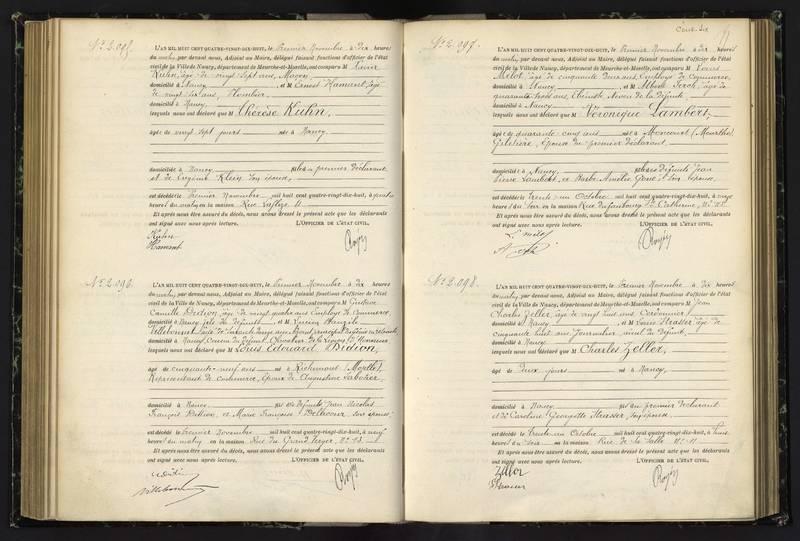 Nº 2.095.
L'AN MIL HUIT CENT QUATRE-VINGT-DIX-HUIT, le Premier Novembre à Dix heures
du matin, par devant nous, Adjoint au Maire, délégué faisant fonctions d'officier de l'état
civil de la Ville de Nancy, département de Meurthe-et-Moselle, ont comparu M
Kuhn, âgé de vingt sept ans, Maçon,
domicilié à Nancy et M Ernest Hamant, âgé
de vingt six ans, Plombier,
domicilié à Nancy
lesquels nous ont déclaré que M Thérèse Kuhn,
âgée de vingt sept jours née à Nancy,
domiciliée à Nancy fille du premier déclarant
et de Eugénie Klein son épouse,
est décédée le Premier Novembre mil huit cent quatre-vingt-dix-huit, à quatre
heures du matin en la maison Rue Laflize 11
Et après nous être assuré du décès, nous avons dressé le présent acte que les déclarants
ont signé avec nous après lecture. L'OFFICIER DE L'ÉTAT CIVIL,
Kuhn
Hamant
Nº 2.096.
L'AN MIL HUIT CENT QUATRE-VINGT-DIX-HUIT, le Premier Novembre à Dix heures
du matin, par devant nous, Adjoint au Maire, délégué faisant fonctions d'officier de l'état
civil de la Ville de Nancy, département de Meurthe-et-Moselle, ont comparu M Gustave
Camille Didion, âgé de vingt quatre ans Employé de Commerce,
domicilié à Nancy fils du défunt et M Lucien
Villebonnet
domicilié à Nancy, Cousin du défunt, Chevalier de la Légion d'Honneur
lesquels nous ont déclaré que M Louis Edouard Didion,
âgé de cinquante-neuf ans né à Richemont (Moselle),
Représentant de commerce, époux de Augustine
domicilié à Nancy fils des défunts Jean Nicolas
François Didion, et Marie Françoise son épouse,
est décédé le Premier Novembre mil huit cent quatre-vingt-dix-huit, à neuf
heures du matin en la maison Rue du Grand Verger, Nº 13.
Et après nous être assuré du décès, nous avons dressé le présent acte que les déclarants
ont signé avec nous après lecture. L'OFFICIER DE L'ÉTAT CIVIL,
Nº 2.097.
L'AN MIL HUIT CENT QUATRE-VINGT-DIX-HUIT, le Premier Novembre à Dix heures
du matin, par devant nous, Adjoint au Maire, délégué faisant fonctions d'officier de l'état
civil de la Ville de Nancy, département de Meurthe-et-Moselle, ont comparu M Louis
Melot, âgé de cinquante Deux ans, Employé de Commerce,
domicilié à Nancy et M Albert âgé de
quarante trois ans, Neveu de la Défunte,
domicilié à Nancy
lesquels nous ont déclaré que M Véronique Lambert,
âgée de quarante cinq ans née à Moncourt (Meurthe)
Giletière, épouse du premier déclarant,
domiciliée à Nancy, fille des défunts Jean
Pierre Lambert, et Barbe Amélie son épouse,
est décédée le Trente-un Octobre mil huit cent quatre-vingt-dix-huit, à onze
heures du soir en la maison Rue du faubourg Ste Catherine,
Et après nous être assuré du décès, nous avons dressé le présent acte que les déclarants
ont signé avec nous après lecture. L'OFFICIER DE L'ÉTAT CIVIL,
Nº 2.098.
L'AN MIL HUIT CENT QUATRE-VINGT-DIX-HUIT, le Premier Novembre à Dix heures
du matin, par devant nous, Adjoint au Maire, délégué faisant fonctions d'officier de l'état
civil de la Ville de Nancy, département de Meurthe-et-Moselle, ont comparu M Jean
Charles Zeller, âgé de vingt huit ans,
domicilié à Nancy et M Louis Strasser âgé de
cinquante huit ans, Journalier, aïeul du défunt,
domicilié à Nancy
lesquels nous ont déclaré que M Charles Zeller,
âgé de Deux jours né à Nancy,
domicilié à Nancy fils du premier déclarant
et de Caroline Georgette Strasser, son épouse,
est décédé le Trente-un Octobre mil huit cent quatre-vingt-dix-huit, à
heures du soir en la maison Rue de la Salle Nº 11
Et après nous être assuré du décès, nous avons dressé le présent acte que les déclarants
ont signé avec nous après lecture. L'OFFICIER DE L'ÉTAT CIVIL,